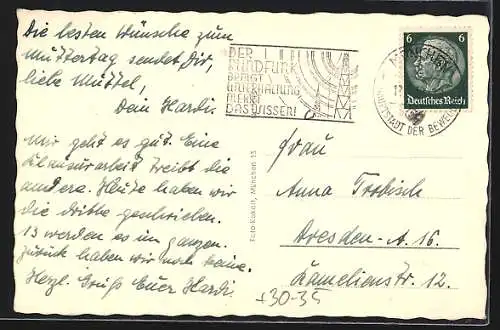 Die besten Wünsche zum
Muttertag sendet Dir,
liebe Muttel,
Dein Hardi.
Mir geht es gut. Eine
Klausurarbeit treibt die
andere. Heute haben wir
die dritte geschrieben.
13 werden es im ganzen.
Zurück haben wir noch keine.
Herzl. Gruß Euer Hardi.
DER
RUNDFUNK
BRINGT
UNTERHALTUNG
MEHRT
DAS WISSEN!
MÜNCHEN
HAUPTSTADT DER BEWEGUNG
6 6
Deutsches Reich
Foto München 15
Frau
Anna Trobisch
Dresden-A. 16.
Kamelienstr. 12.
+30-35